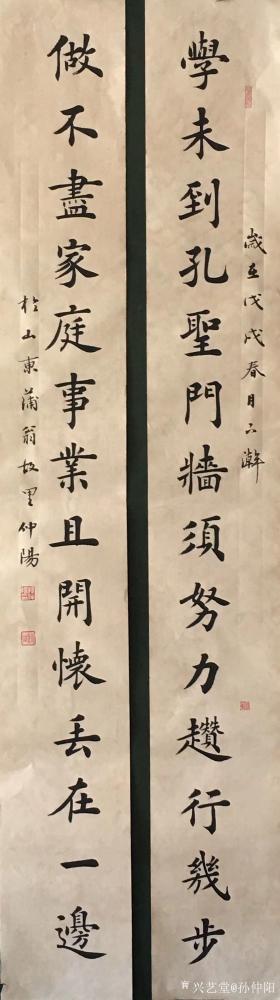 學未到孔聖門牆須努力趲行幾步
歲在戊戌春月
做不盡家庭事業且開懷丟在一邊
於山東蒲翁故里仲陽
兴艺堂@孙仲阳